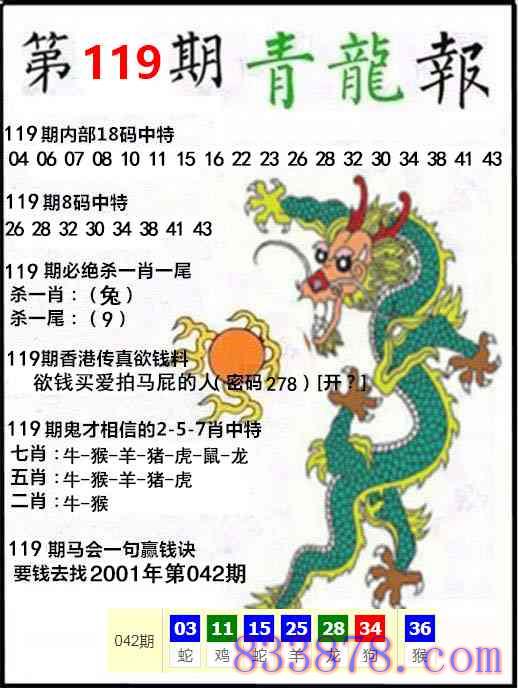 第119期青龍報
119期内部18码中特
04 06 07 08 10 11 15 16 22 23 26 28 32 30 34 38 41 43
119期8码中特
26 28 32 30 34 38 41 43
119 期必绝杀一肖一尾
杀一肖：（兔）
杀一尾：（9）
119期香港传真欲钱料
欲钱买爱拍马屁的人（密码278）[开？]
119期鬼才相信的2-5-7肖中特
七肖：牛-猴-羊-猪-虎-鼠-龙
五肖：牛-猴-羊-猪-虎
二肖：牛-猴
119 期马会一句赢钱诀
要钱去找2001年第042期
042期 03 11 15 25 28 34 36
蛇 鸡 蛇 羊 龙 狗 猴
833878.com